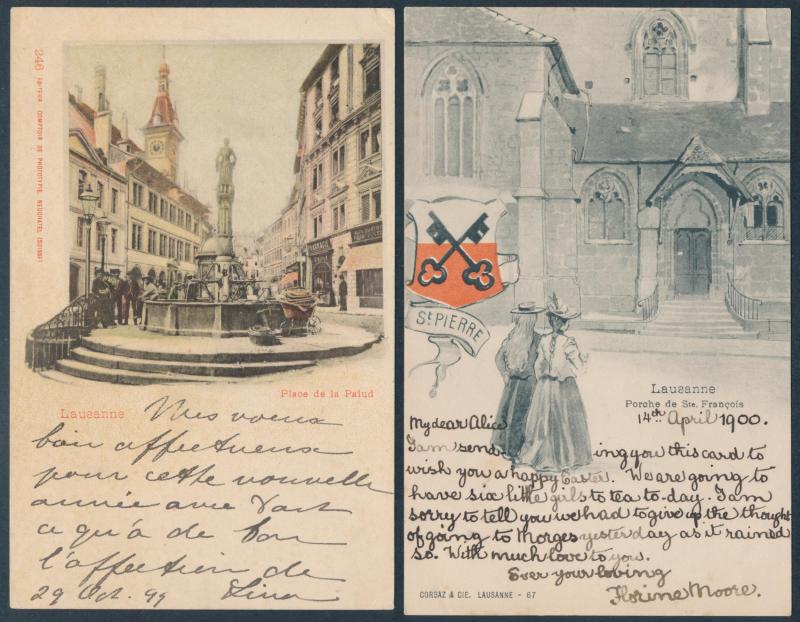 246 EDITEUR COMPTOIR DE PHOTOTYPIE, NEUCHATEL (SUISSE)
Place de la Palud
Lausanne
Mes voeux
bon affectueux
pour cette nouvelle
année avec tout
ce qu'a de bon
l'affection de
29 Oct. 99 Lina
ST PIERRE
Lausanne
Porche de Ste. François
14th April 1900.
My dear Alice
I am sending you this card to
wish you a happy Easter. We are going to
have six little girls to tea to-day. I am
sorry to tell you we had to give up the thought
of going to Morges yesterday as it rained
so. With much love to you.
Ever your loving
Florine Moore.
CORBAZ & CIE. LAUSANNE - 67